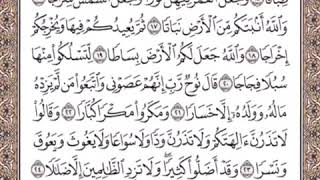 طِبَاقًا ۝١٥ وَجَعَلَ ٱلْقَمَرَ فِيهِنَّ نُورًا وَجَعَلَ ٱلشَّمْسَ سِرَاجًا ۝١٦
وَٱللَّهُ أَنۢبَتَكُم مِّنَ ٱلْأَرْضِ نَبَاتًا ۝١٧ ثُمَّ يُعِيدُكُمْ فِيهَا وَيُخْرِجُكُمْ
إِخْرَاجًا ۝١٨ وَٱللَّهُ جَعَلَ لَكُمُ ٱلْأَرْضَ بِسَاطًا ۝١٩ لِّتَسْلُكُوا۟ مِنْهَا
سُبُلًا فِجَاجًا ۝٢٠ قَالَ نُوحٌ رَّبِّ إِنَّهُمْ عَصَوْنِى وَٱتَّبَعُوا۟ مَن لَّمْ يَزِدْهُ
مَالُهُۥ وَوَلَدُهُۥٓ إِلَّا خَسَارًا ۝٢١ وَمَكَرُوا۟ مَكْرًا كُبَّارًا ۝٢٢ وَقَالُوا۟
لَا تَذَرُنَّ ءَالِهَتَكُمْ وَلَا تَذَرُنَّ وَدًّا وَلَا سُوَاعًا وَلَا يَغُوثَ وَيَعُوقَ
وَنَسْرًا ۝٢٣ وَقَدْ أَضَلُّوا۟ كَثِيرًا وَلَا تَزِدِ ٱلظَّٰلِمِينَ إِلَّا ضَلَٰلًا ۝٢٤